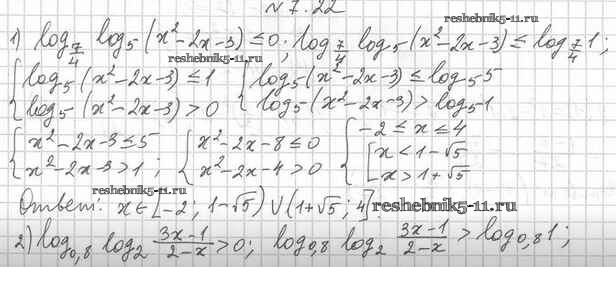 №7.22
reshebnik5-11.ru
1) log_{7/4} log_5 (x²-2x-3) ≤ 0; log_{7/4} log_5 (x²-2x-3) ≤ log_{7/4} 1;
reshebnik5-11.ru
{ log_5 (x²-2x-3) ≤ 1 { log_5 (x²-2x-3) ≤ log_5 5
{ log_5 (x²-2x-3) > 0 { log_5 (x²-2x-3) > log_5 1
{ x²-2x-3 ≤ 5 { x²-2x-8 ≤ 0 { -2 ≤ x ≤ 4
{ x²-2x-3 > 1; { x²-2x-4 > 0 { [ x < 1-√5
[ x > 1+√5
reshebnik5-11.ru
Ответ: x ∈ [-2; 1-√5) ∪ (1+√5; 4]
reshebnik5-11.ru
2) log_{0,8} log_2 (3x-1)/(2-x) > 0; log_{0,8} log_2 (3x-1)/(2-x) > log_{0,8} 1;